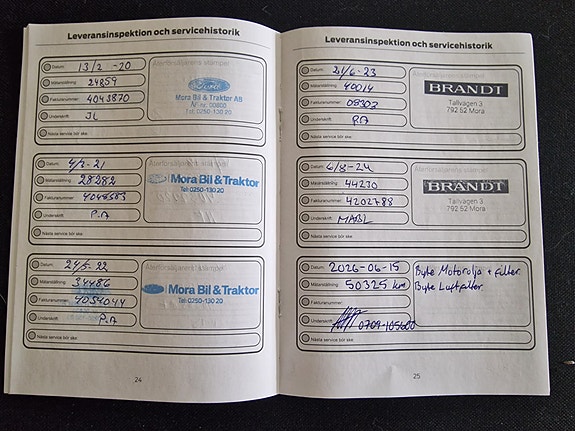 Leveransinspektion och servicehistorik
Datum: 13/2 -20
Mätarställning: 24859
Fakturanummer: 4043870
Underskrift: JL
Nästa service bör ske:
Återförsäljarens stämpel
Ford
Mora Bil & Traktor AB
Tel: 0250-130 20
Datum: 4/3-21
Mätarställning: 28282
Fakturanummer:
Underskrift: P.A
Nästa service bör ske:
Återförsäljarens stämpel
Ford Mora Bil & Traktor
Tel: 0250-130 20
Datum: 24/5-22
Mätarställning: 34486
Fakturanummer: 4054044
Underskrift: P.A
Nästa service bör ske:
Återförsäljarens stämpel
Ford Mora Bil & Traktor
Tel: 0250-130 20
24
Leveransinspektion och servicehistorik
Datum: 21/6-23
Mätarställning: 40014
Fakturanummer: 09302
Underskrift: P.A
Nästa service bör ske:
Återförsäljarens stämpel
BRANDT
Tallvägen 3
792 52 Mora
Datum: 6/8-24
Mätarställning: 44230
Fakturanummer: 4202788
Underskrift:
Nästa service bör ske:
Återförsäljarens stämpel
BRANDT
Tallvägen 3
792 52 Mora
Datum: 2026-06-15
Mätarställning: 50325 km
Fakturanummer:
Underskrift: 0709-105600
Nästa service bör ske:
Återförsäljarens stämpel
Byte Motorolja + filter.
Byte Luftfilter
25